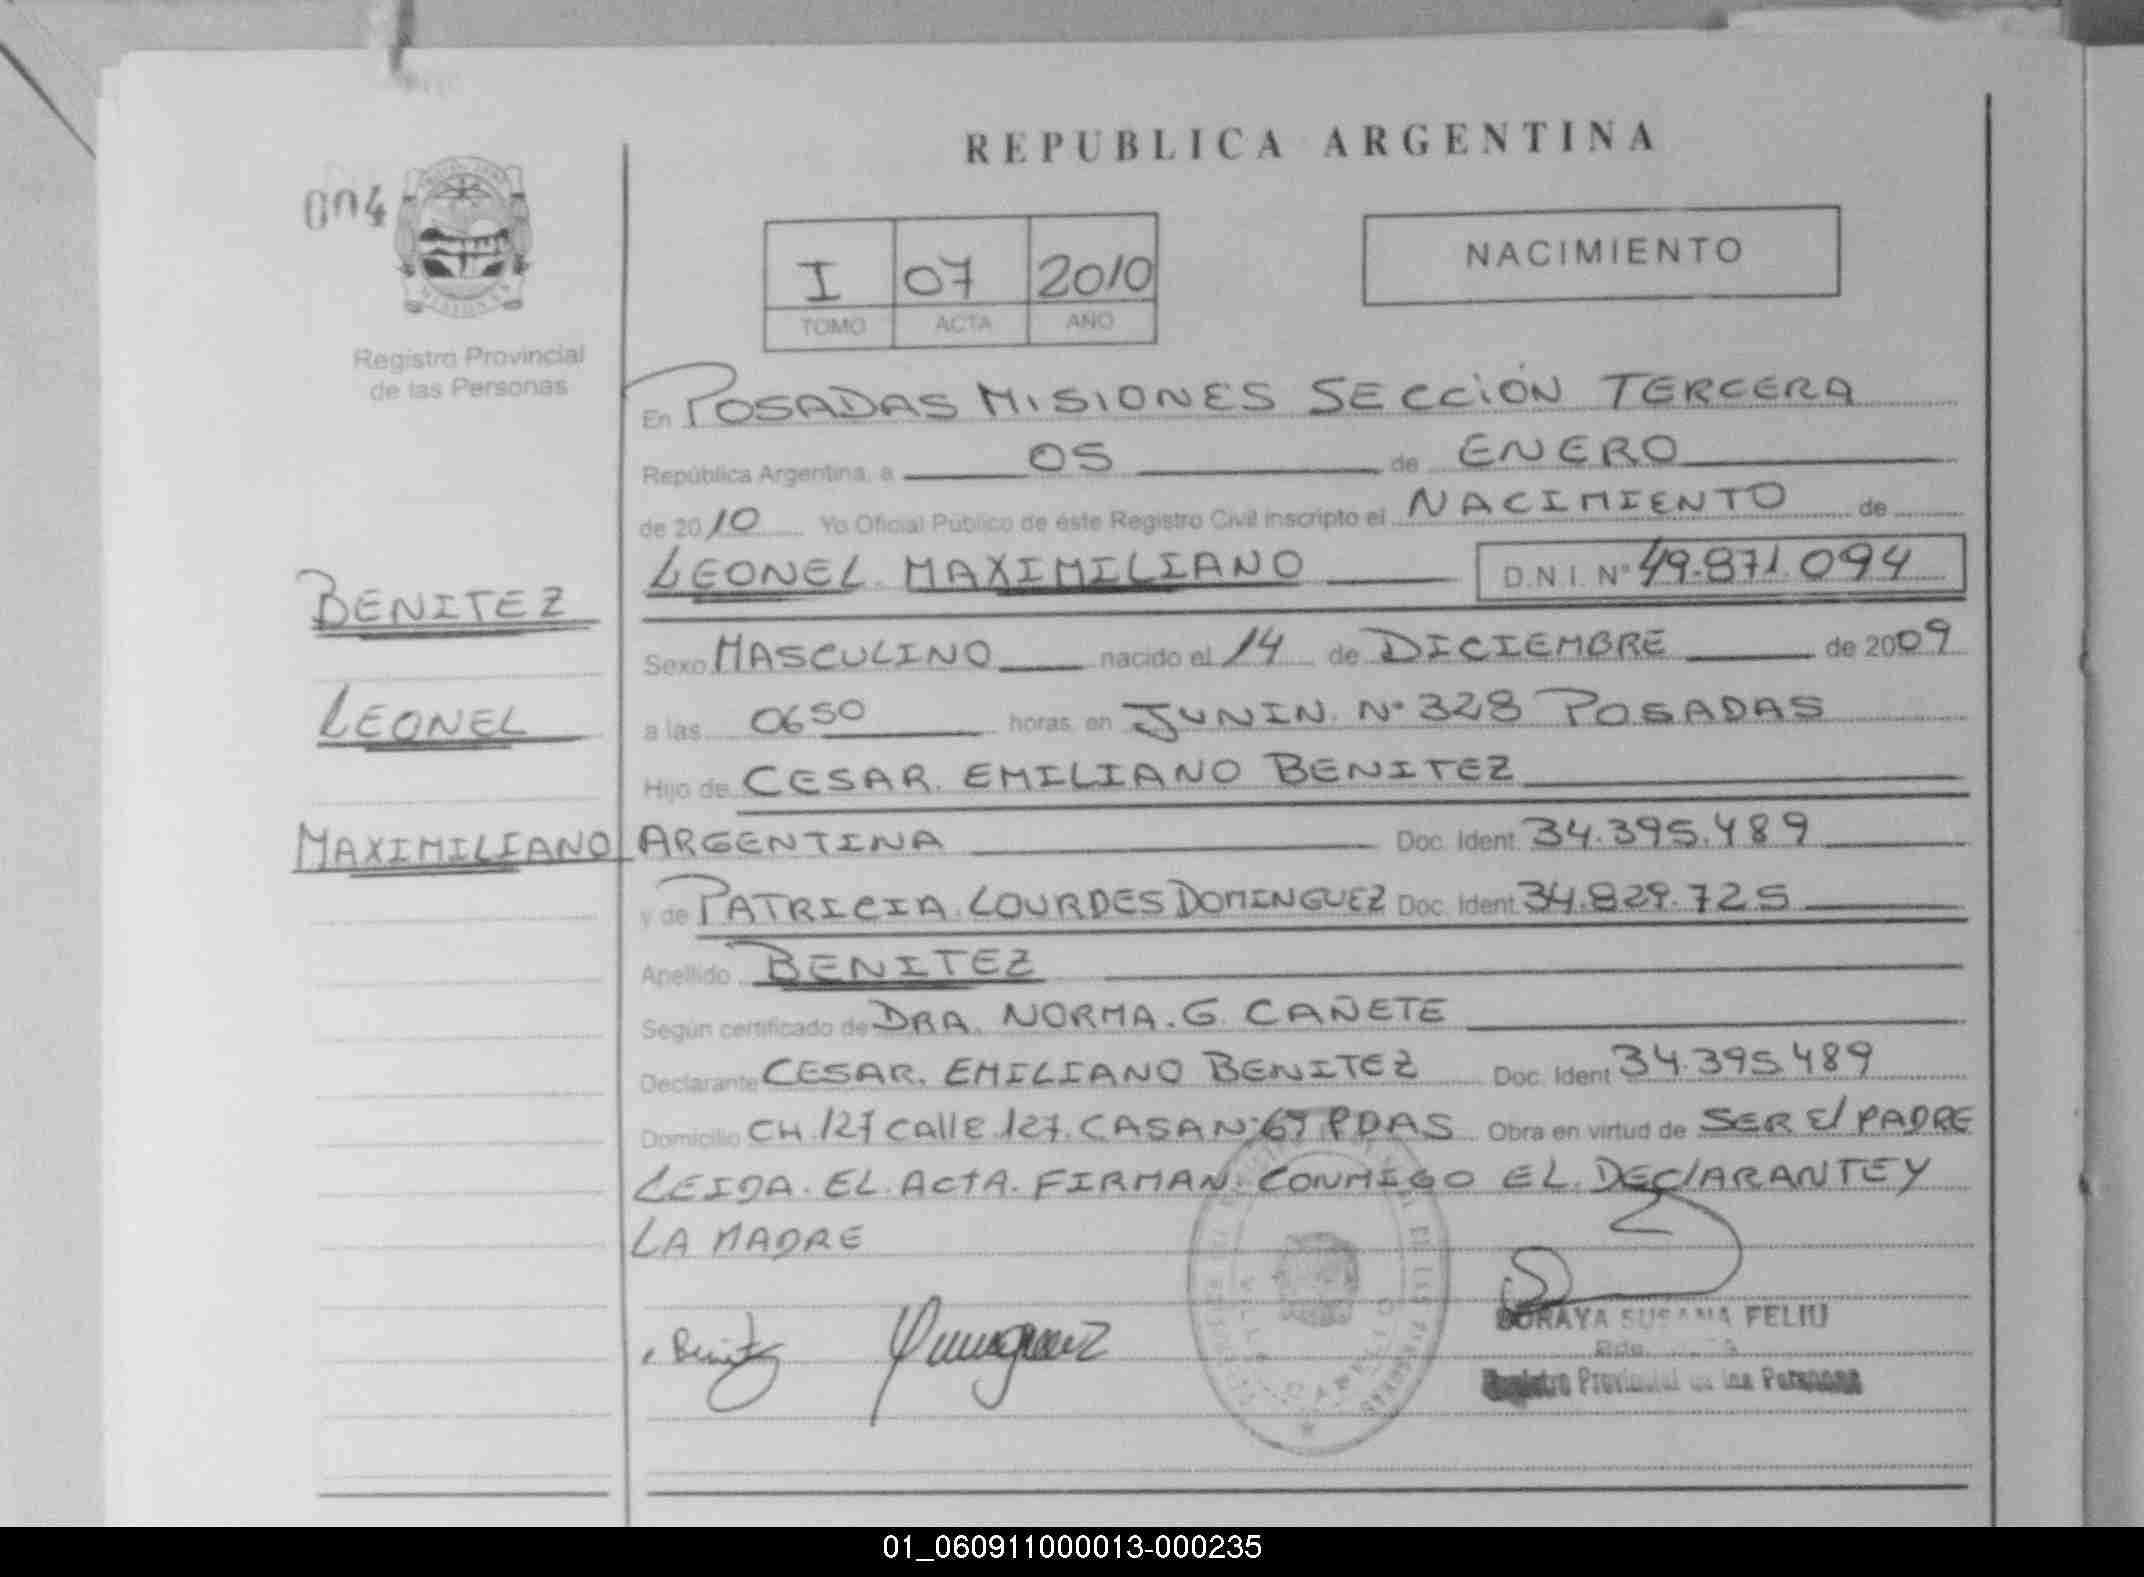 REPUBLICA ARGENTINA
004
MISIONES
Registro Provincial
de las Personas
I 07 2010
TOMO ACTA AÑO
NACIMIENTO
En POSADAS MISIONES SECCIÓN TERCERA
República Argentina, a 05 de ENERO
de 2010 Yo Oficial Público de éste Registro Civil inscripto el NACIMIENTO de
LEONEL MAXIMILIANO D.N.I. Nº 49.871.094
BENITEZ
LEONEL
MAXIMILIANO
Sexo MASCULINO nacido el 14 de DICIEMBRE de 2009
a las 0650 horas, en JUNIN. Nº 328 POSADAS
Hijo de CESAR. EMILIANO BENITEZ
ARGENTINA Doc. Ident. 34.395.489
y de PATRICIA LOURDES DOMINGUEZ Doc. Ident. 34.829.725
Apellido BENITEZ
Según certificado de DRA. NORMA. G. CAÑETE
Declarante CESAR. EMILIANO BENITEZ Doc. Ident. 34.395.489
Domicilio CH. 127 calle 127. CASA Nº 67 PDAS Obra en virtud de SER El PADRE
LEIDA. EL ACTA. FIRMAN. CONMIGO EL DEClARANTE Y
LA MADRE
SORAYA SUSANA FELIU
Registro Provincial de las Personas
01_060911000013-000235